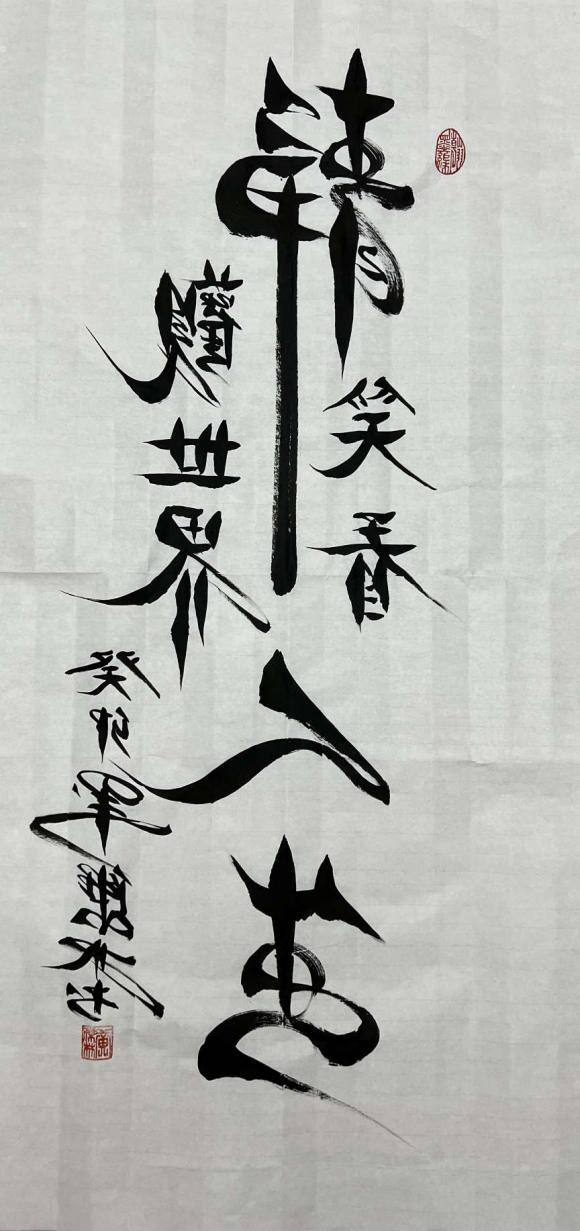 静
笑看
人生
觀世界
癸卯年